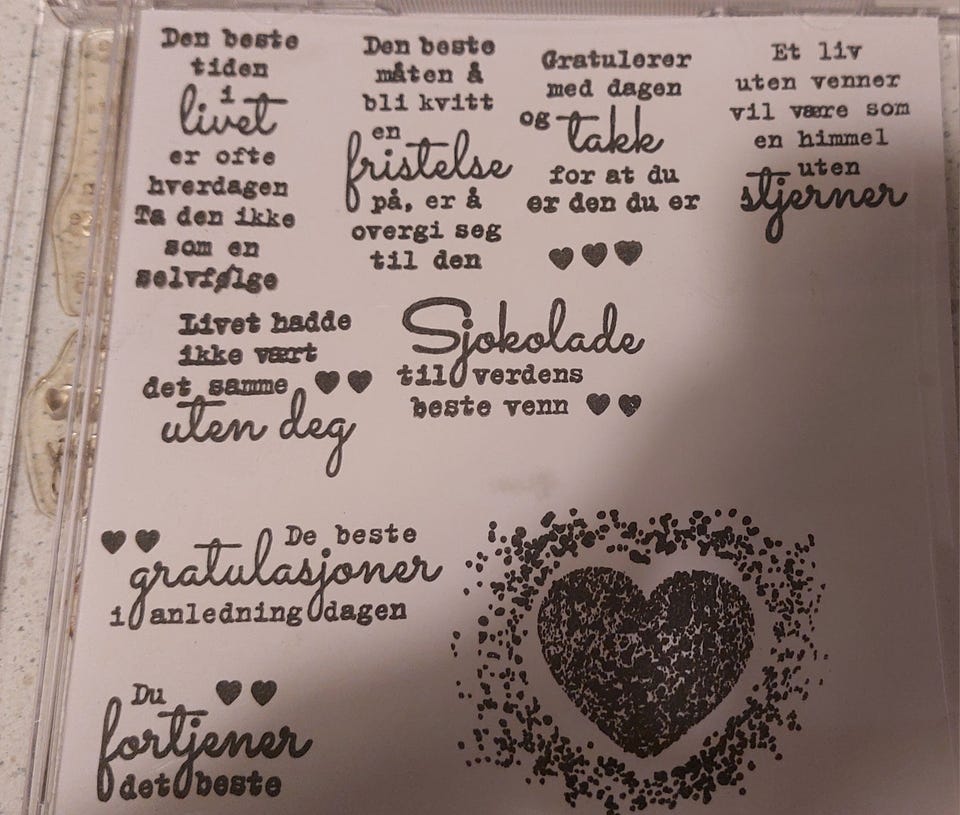 Den beste
tiden
i
livet
er ofte
hverdagen
Ta den ikke
som en
selvfølge
Den beste
måten å
bli kvitt
en
fristelse
på, er å
overgi seg
til den
Gratulerer
med dagen
og takk
for at du
er den du er
Et liv
uten venner
vil være som
en himmel
uten
stjerner
Livet hadde
ikke vært
det samme
uten deg
Sjokolade
til verdens
beste venn
De beste
gratulasjoner
i anledning dagen
Du
fortjener
det beste